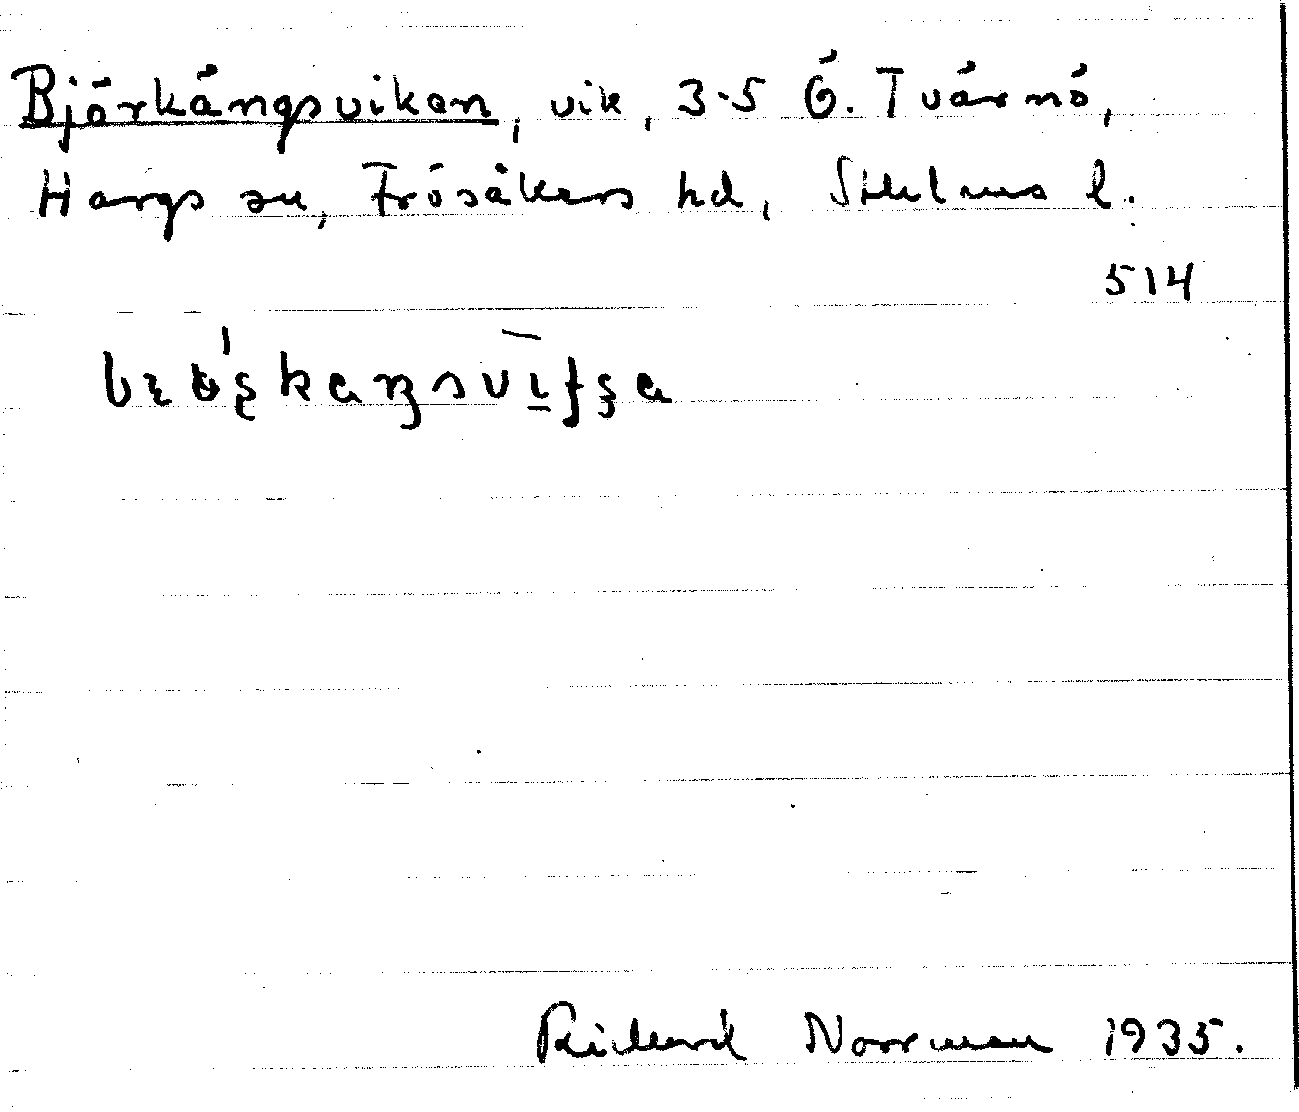 Björkängsviken, vik, 3-5 Ö. Tvärnö,
Hargs sn, Frösåkers hd, Sthlms l.
514
Rickard Norrman 1935.